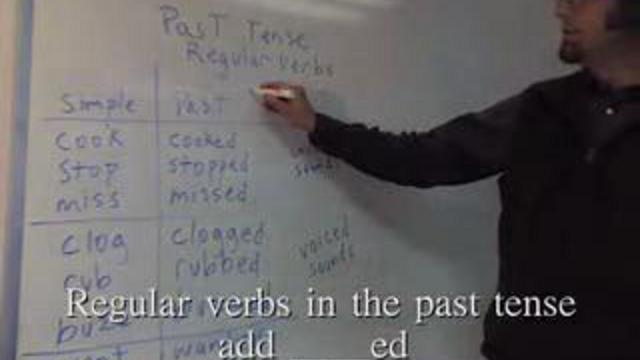 Past Tense
Regular Verbs
Simple Past
cook cooked
stop stopped sounds
miss missed
clog clogged voiced
rub rubbed sounds
buzz
Regular verbs in the past tense
add ed